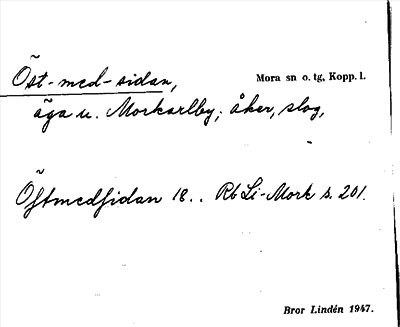 Öst-med-sidan, Mora sn o. tg, Kopp. l.
äga u. Morkarlby; åker, slog,
Öftmedfidan 18.. Rb Li-Mork s. 201.
Bror Lindén 1947.